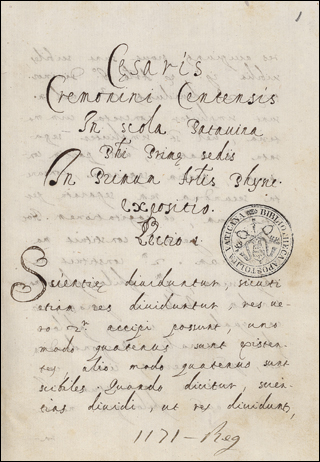 1
Cesaris
Cremonini Centensis
In scola Patavina
Phi Primę sedis
In Primum Artis Physce.
Expositio.
Lectio 1
BIBLIOTHECA APOSTOLICA VATICANA
Scientię dividuntur, sicuti
etiam res dividuntur, res ve-
ro 2r. accipi possunt, uno
modo quatenus sunt existen-
tes, alio modo quatenus sunt
scibiles. Quando dicitur, scien-
tias dividi, ut res dividunt,
1171 - Reg